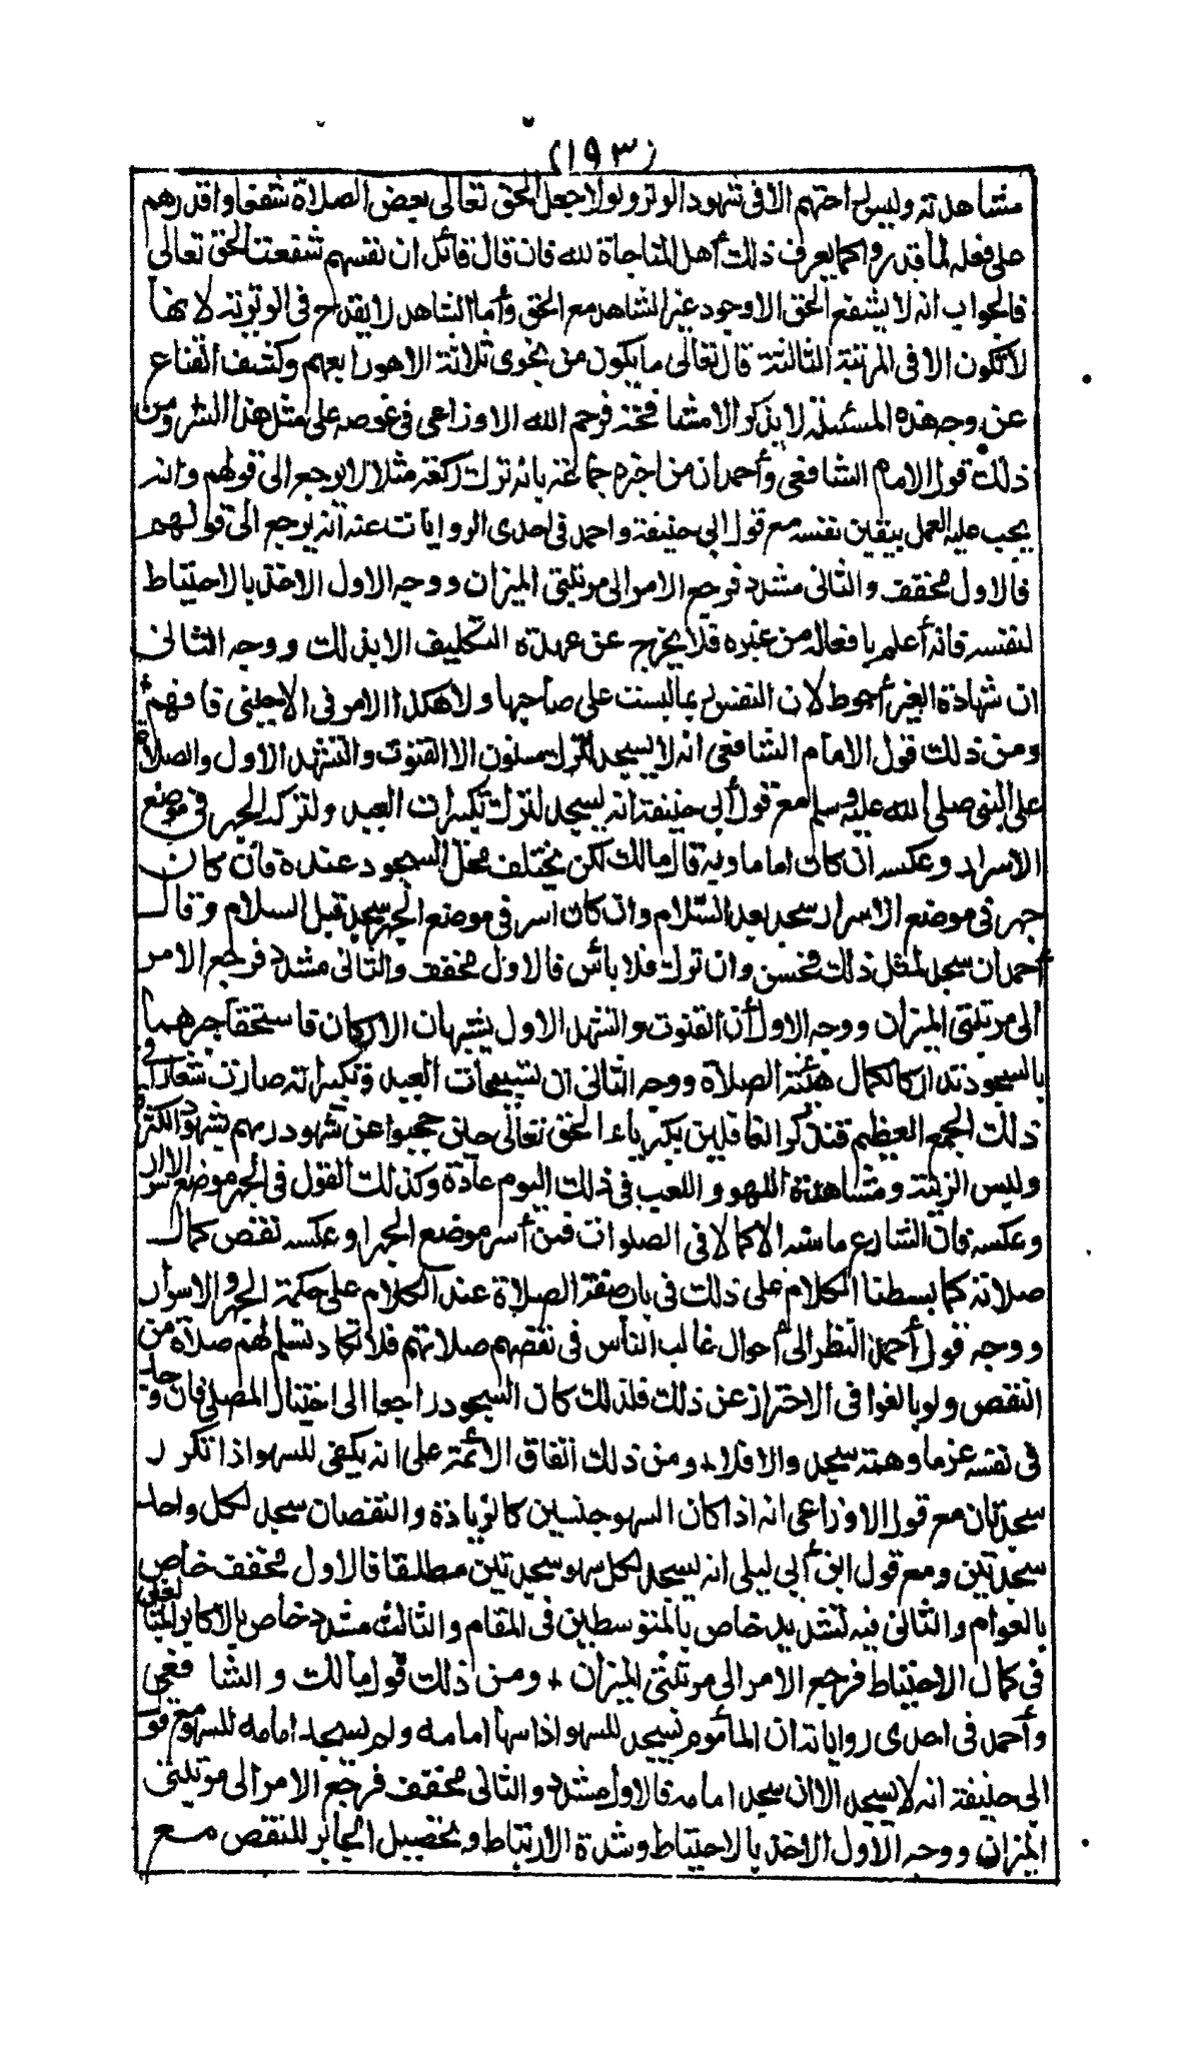 (١٩٣)
مشاهدته وليس راحتهم الا فى شهود الوتر ولولا جعل الحق تعالى بعض الصلاة شفعا واقدرهم
على فعله لما قدروا كما يعرف ذلك أهل المناجاة لله فان قال قائل ان نفسهم شفعت الحق تعالى
فالجواب انه لا يشفع الحق الا وجود غير الشاهد مع الحق وأما الشاهد لا يقدح فى الوترية لانها
لا تكون الا فى المرتبة الثالثة قال تعالى ما يكون من نجوى ثلاثة الا هو رابعهم وكشف القناع
عن وجه هذه المسئلة لا يذكر الا مشافهة فرحم الله الاوزاعى فى غوصه على مثل هذا السر ومن
ذلك قول الامام الشافعى وأحمد ان من اخبره جماعة بانه ترك ركعة مثلا لا يرجع الى قولهم وانه
يجب عليه العمل بيقين نفسه مع قول ابى حنيفة واحمد فى احدى الروايات عنه أنه يرجع الى قولهم
فالاول مخفف والثانى مشدد فرجع الامر الى مرتبتى الميزان ووجه الاول الاخذ بالاحتياط
لنفسه فانه أعلم بافعاله من غيره فلا يخرج عن عهدة التكليف الا بذلك ووجه الثانى
ان شهادة الغير أحوط لان النفس ربما لبست على صاحبها ولا هكذا الامر فى الاجنبى فافهم
ومن ذلك قول الامام الشافعى انه لا يسجد لترك مسنون الا القنوت والتشهد الاول والصلاة
على النبى صلى الله عليه وسلم مع قول أبى حنيفة انه يسجد لترك تكبيرات العيد ولتركه الجهر فى موضع
الاسرار وعكسه ان كان اماما وبه قال مالك لكن يختلف محل السجود عنده فان كان
جهر فى موضع الاسرار سجد بعد السلام وان كان أسر فى موضع الجهر سجد قبل السلام وقال
أحمد ان سجد لمثل ذلك فحسن وان ترك فلا بأس فالاول مخفف والثانى مشدد فرجع الامر
الى مرتبتى الميزان ووجه الاول أن القنوت والتشهد الاول يشبهان الاركان فاستحقا جبرهما
بالسجود تداركا لكمال هيئة الصلاة ووجه الثانى ان تسبيحات العيد وتكبيراته صارت شعارا فى
ذلك الجمع العظيم فتذكر الغافلين بكبرياء الحق تعالى حين حجبوا عن شهود ربهم بشهود الكثرة
ولبس الزينة ومشاهدة اللهو واللعب فى ذلك اليوم عادة وكذلك القول فى الجهر موضع الاسرار
وعكسه فان الشارع ما سنه الا كمالا فى الصلوات فمن أسر موضع الجهر او عكسه نقص كمال
صلاته كما بسطنا الكلام على ذلك فى باب صفة الصلاة عند الكلام على حكمة الجهر والاسرار
ووجه قول أحمد النظر الى أحوال غالب الناس فى نقصهم صلاتهم فلا تكاد تسلم لهم صلاة من
النقص ولو بالغوا فى الاحتراز عن ذلك فلذلك كان السجود راجعا الى اختيار المصلى فان وجد
فى نفسه عزما وهمة سجد والا فلا + ومن ذلك اتفاق الأئمة على انه يكفى للسهو اذا تكرر
سجدتان مع قول الاوزاعى انه اذا كان السهو جنسين كالزيادة والنقصان سجد لكل واحد
سجدتين ومع قول ابن أبى ليلى انه يسجد لكل سهو سجدتين مطلقا فالاول مخفف خاص
بالعوام والثانى فيه تشديد خاص بالمتوسطين فى المقام والثالث مشدد خاص بالاكابر المبالغين
فى كمال الاحتياط فرجع الامر الى مرتبتى الميزان + ومن ذلك قول مالك والشافعى
وأحمد فى احدى رواياته ان المأموم يسجد للسهو اذا سها امامه ولم يسجد امامه للسهو مع قول
ابى حنيفة انه لا يسجد الا ان سجد امامه فالاول مشدد والثانى مخفف فرجع الامر الى مرتبتى
الميزان ووجه الاول الاخذ بالاحتياط وشدة الارتباط وتحصيل الجابر للنقص مع